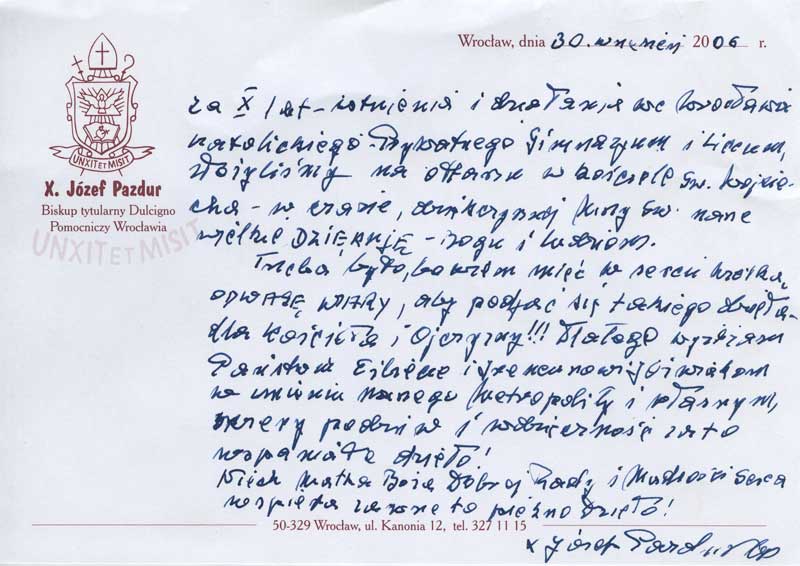 Wrocław, dnia 30. wrzesień 2006 r.
UNXIT ET MISIT
X. Józef Pazdur
Biskup tytularny Dulcigno
Pomocniczy Wrocławia
UNXIT ET MISIT
za X lat istnienia i działania we Wrocławiu
Katolickiego Prywatnego Gimnazjum i Liceum,
złożyliśmy na ołtarzu w kościele św. Wojcie-
cha - w czasie, dziękczynnej Mszy św. nasze
wielkie DZIĘKUJĘ - Bogu i ludziom.
Trzeba było, bowiem mieć w sercu wielką
ODWAGĘ WIARY, aby podjąć się takiego dzieła
dla Kościoła i Ojczyzny!!! Dlatego wyrażam
Państwu Elżbiecie i
w imieniu naszego Metropolity i własnym,
szczery podziw i wdzięczność za to
wspaniałe dzieło!
Niech Matka Boża Dobrej Rady i Mądrości Serca
wspiera zawsze to piękne Dzieło!
50-329 Wrocław, ul. Kanonia 12, tel. 327 11 15
x Józef Pazdur bp